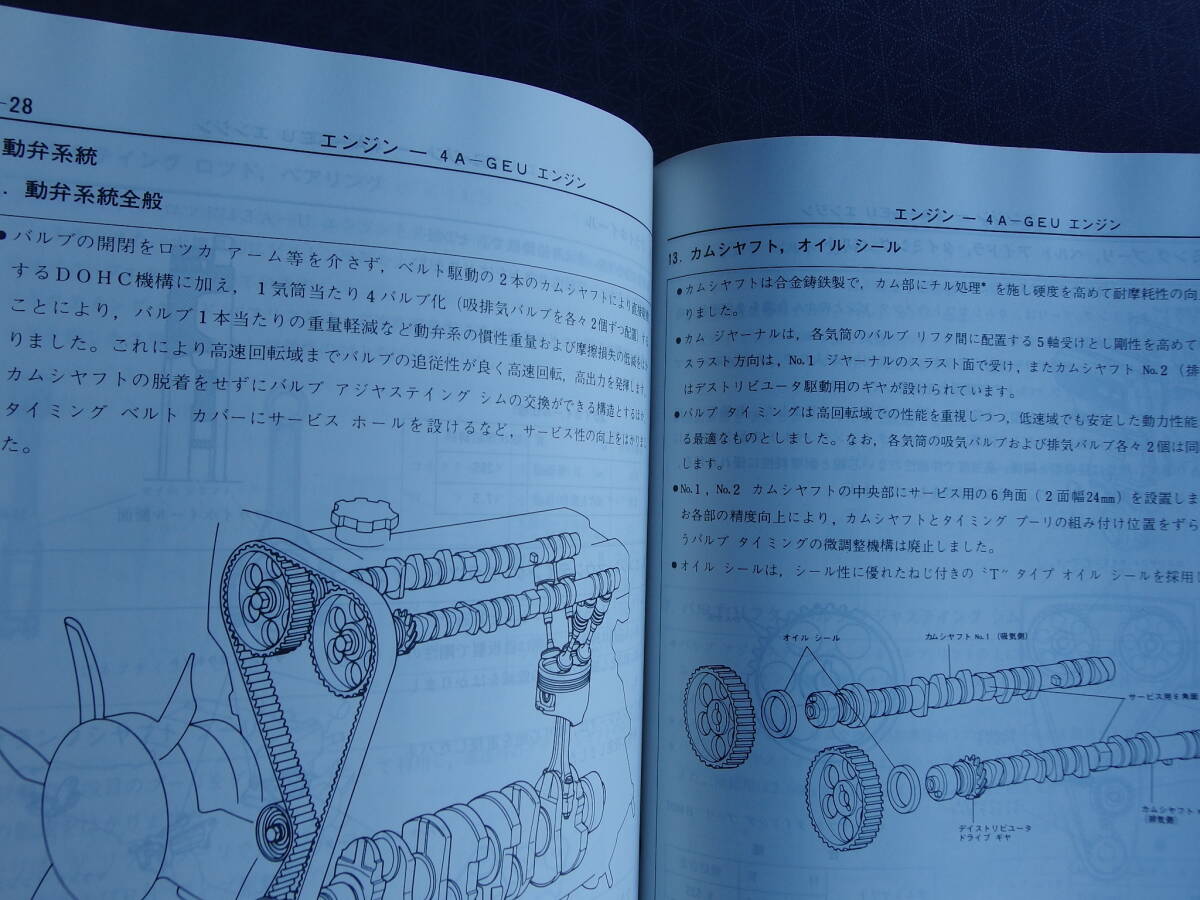 -28
エンジン ー 4A-GEU エンジン
動弁系統
. 動弁系統全般
●バルブの開閉をロツカ アーム等を介さず，ベルト駆動の2本のカムシャフトにより直接駆動
するDOHC機構に加え，1気筒当たり4バルブ化（吸排気バルブを各々2個ずつ配置）する
ことにより，バルブ1本当たりの重量軽減など動弁系の慣性重量および摩擦損失の低減をはか
りました。これにより高速回転域までバルブの追従性が良く高速回転，高出力を発揮します。
カムシャフトの脱着をせずにバルブ アジヤステイング シムの交換ができる構造とするほか，
タイミング ベルト カバーにサービス ホールを設けるなど，サービス性の向上をはかりまし
た。
エンジン ー 4A-GEU エンジン
13. カムシヤフト，オイル シール
●カムシヤフトは合金鋳鉄製で，カム部にチル処理*を施し硬度を高めて耐摩耗性の向
りました。
●カム ジヤーナルは，各気筒のバルブ リフタ間に配置する5軸受けとし剛性を高めて
スラスト方向は，No.1 ジヤーナルのスラスト面で受け，またカムシヤフト No.2（排
はデストリビユータ駆動用のギヤが設けられています。
●バルブ タイミングは高回転域での性能を重視しつつ，低速域でも安定した動力性能
る最適なものとしました。なお，各気筒の吸気バルブおよび排気バルブ各々2個は同
します。
●No.1，No.2 カムシヤフトの中央部にサービス用の6角面（2面幅24mm）を設置しま
お各部の精度向上により，カムシヤフトとタイミング プーリの組み付け位置をずら
うバルブ タイミングの微調整機構は廃止しました。
●オイル シールは，シール性に優れたねじ付きの〝T″タイプ オイル シールを採用し
オイル シール
カムシヤフト No.1（吸気側）
サービス用6角面
カムシヤフト
（排気側）
デイストリビユータ
ドライブ ギヤ